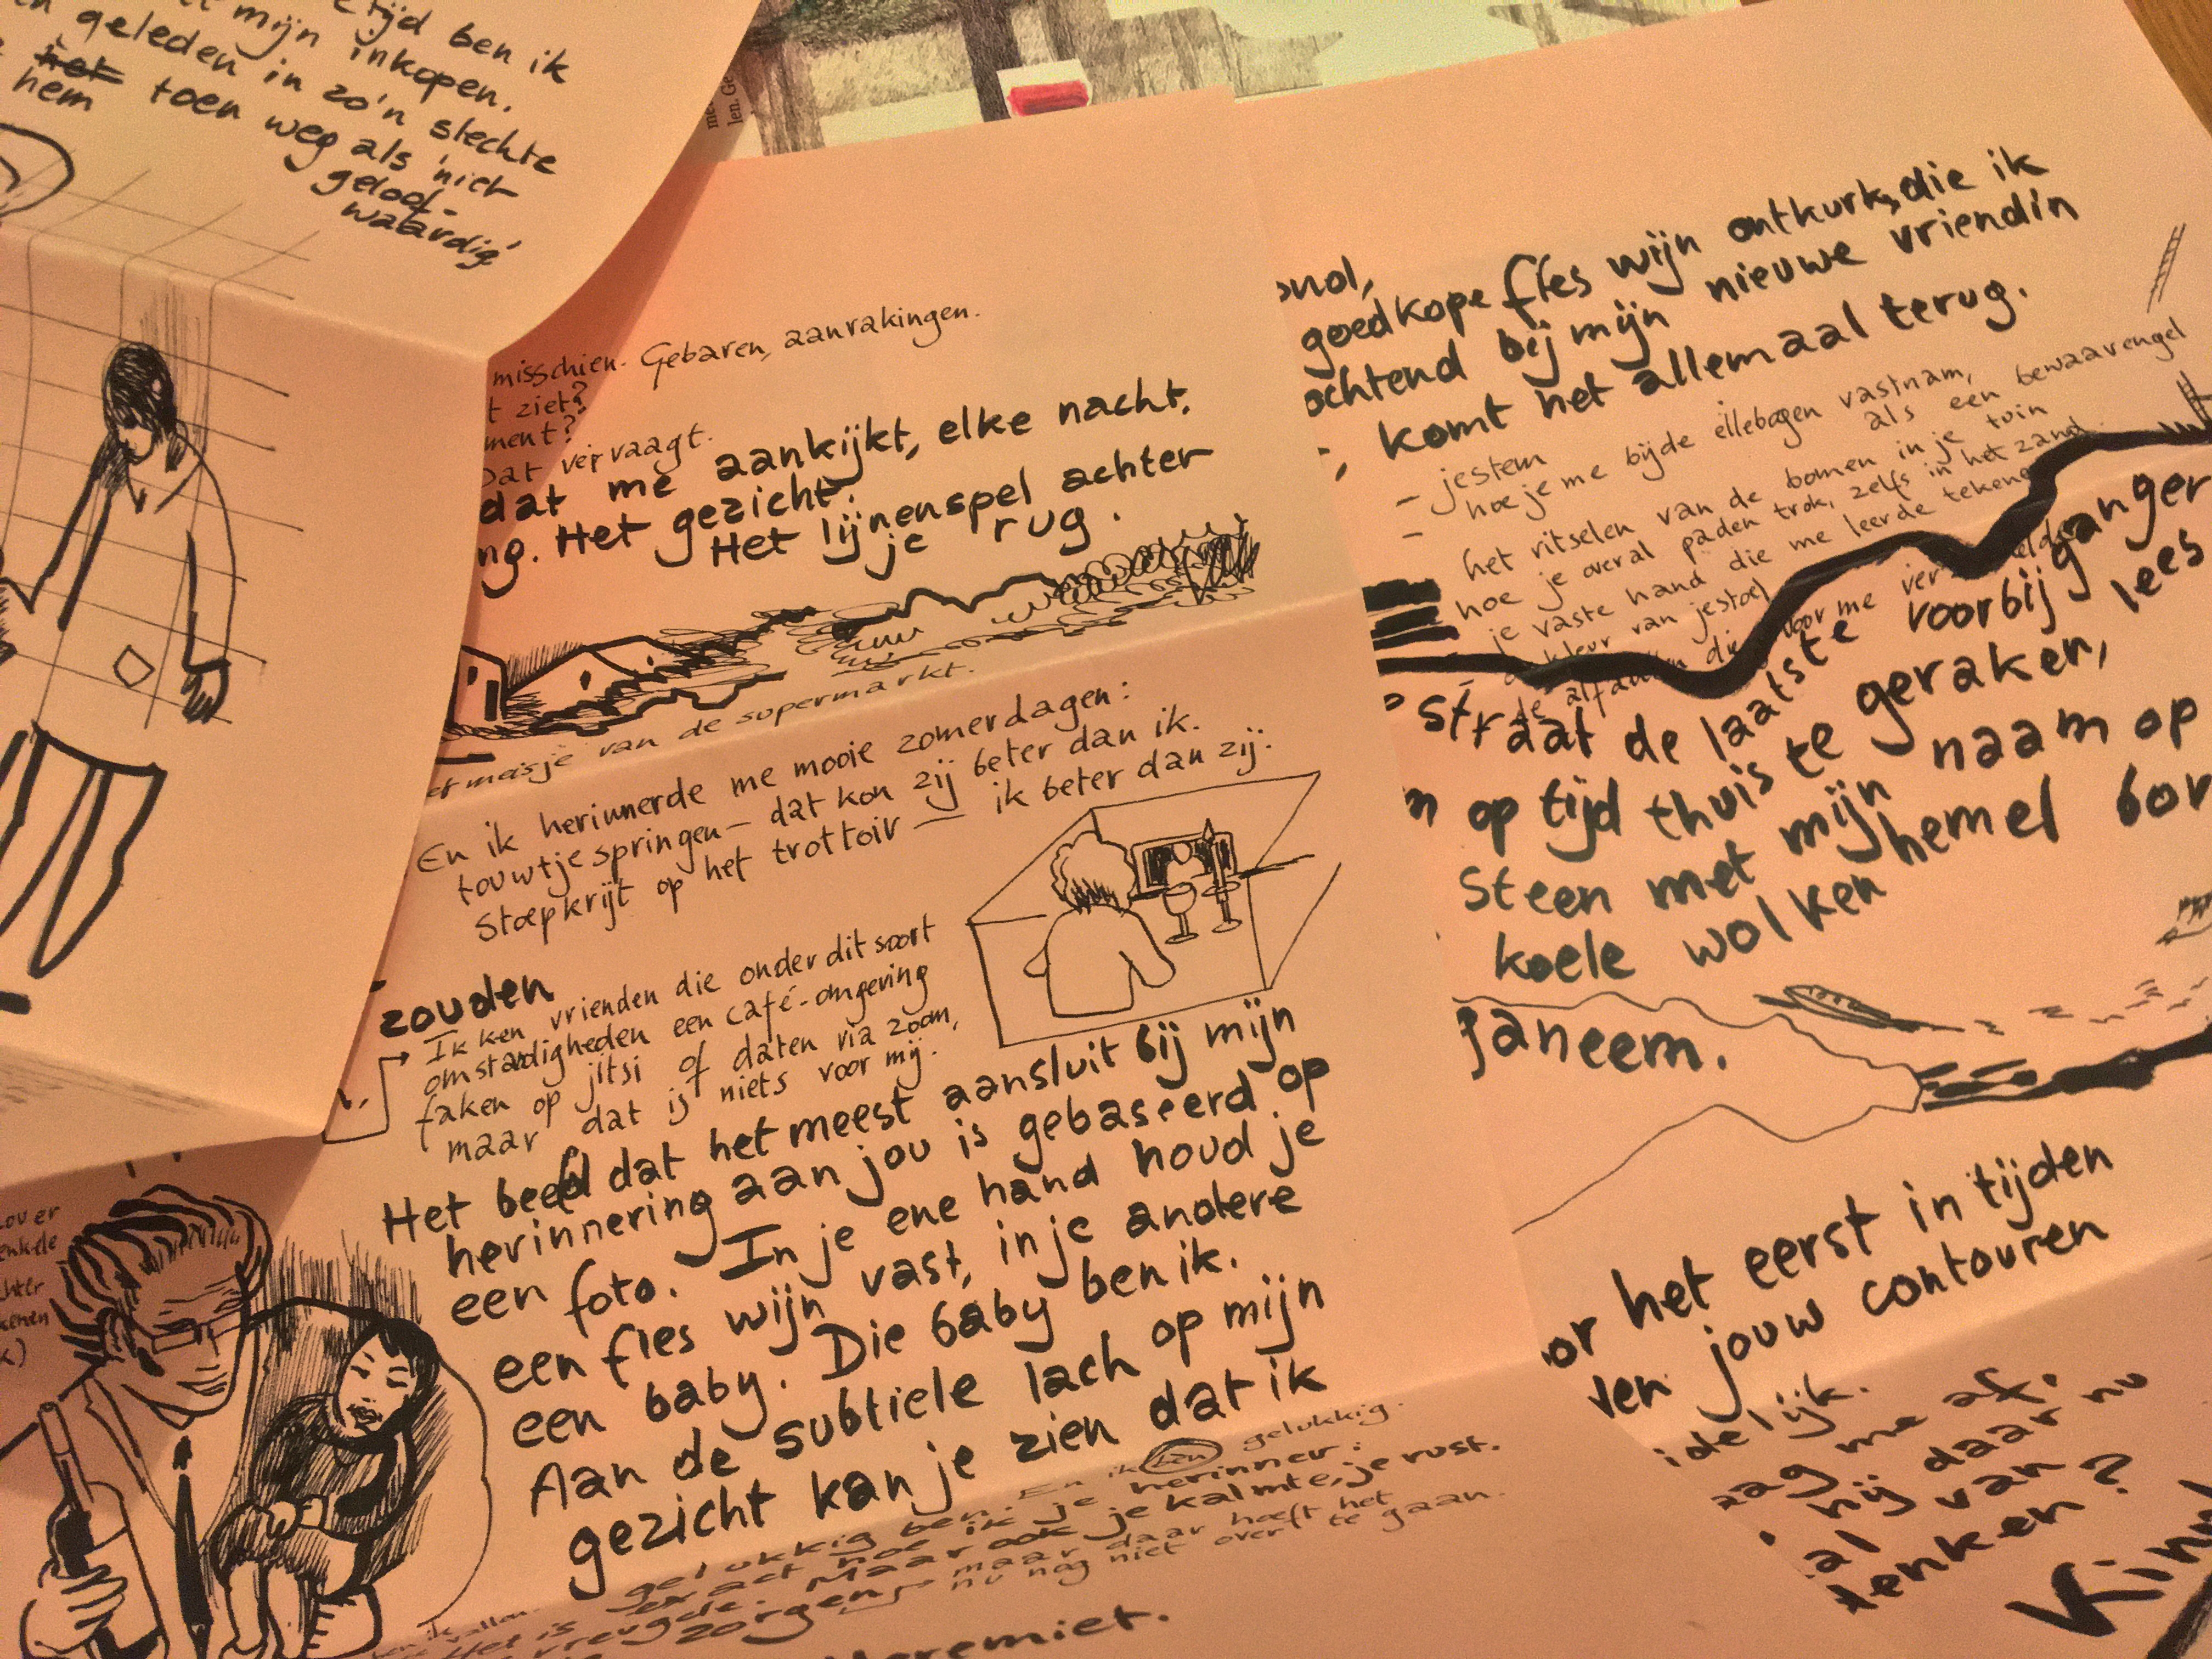 tijd ben ik
mijn inkopen.
geleden in zo'n slechte
het toen weg als 'niet
hem geloof-
waardig'
misschien. Gebaren, aanrakingen.
t ziet?
ment?
Dat vervaagt.
dat me aankijkt, elke nacht.
ng. Het gezicht.
Het lijnenspel achter
je rug.
meisje van de supermarkt.
En ik herinnerde me mooie zomerdagen:
touwtjespringen – dat kon zij beter dan ik.
Stoepkrijt op het trottoir – ik beter dan zij.
zouden
Ik ken vrienden die onder dit soort
omstandigheden een café-omgeving
faken op jitsi of daten via zoom,
maar dat is niets voor mij.
Het beeld dat het meest aansluit bij mijn
herinnering aan jou is gebaseerd op
een foto. In je ene hand houd je
een fles wijn vast, in je andere
een baby. Die baby ben ik.
Aan de subtiele lach op mijn
gezicht kan je zien dat ik
gelukkig ben. En ik ben gelukkig.
Het is exact hoe ik je herinner:
vreugde. Maar ook je kalmte, je rust.
zorgen – maar daar hoeft het
nu nog niet over te gaan.
goedkope fles wijn ontkurk, die ik
ochtend bij mijn nieuwe vriendin
komt het allemaal terug.
– jestem
– hoe je me bij de ellebogen vastnam,
als een bewaarengel
het ritselen van de bomen in je tuin
hoe je overal paden trok, zelfs in het zand
je vaste hand die me leerde tekenen
kleur van je stoel
de die voor me
straat de laatste voorbijganger
op tijd thuis te geraken, lees
steen met mijn naam op
koele wolkenhemel bor
janeem.
or het eerst in tijden
ven jouw contouren
idelijk.
zag me af,
hij daar nu
al van
denken?